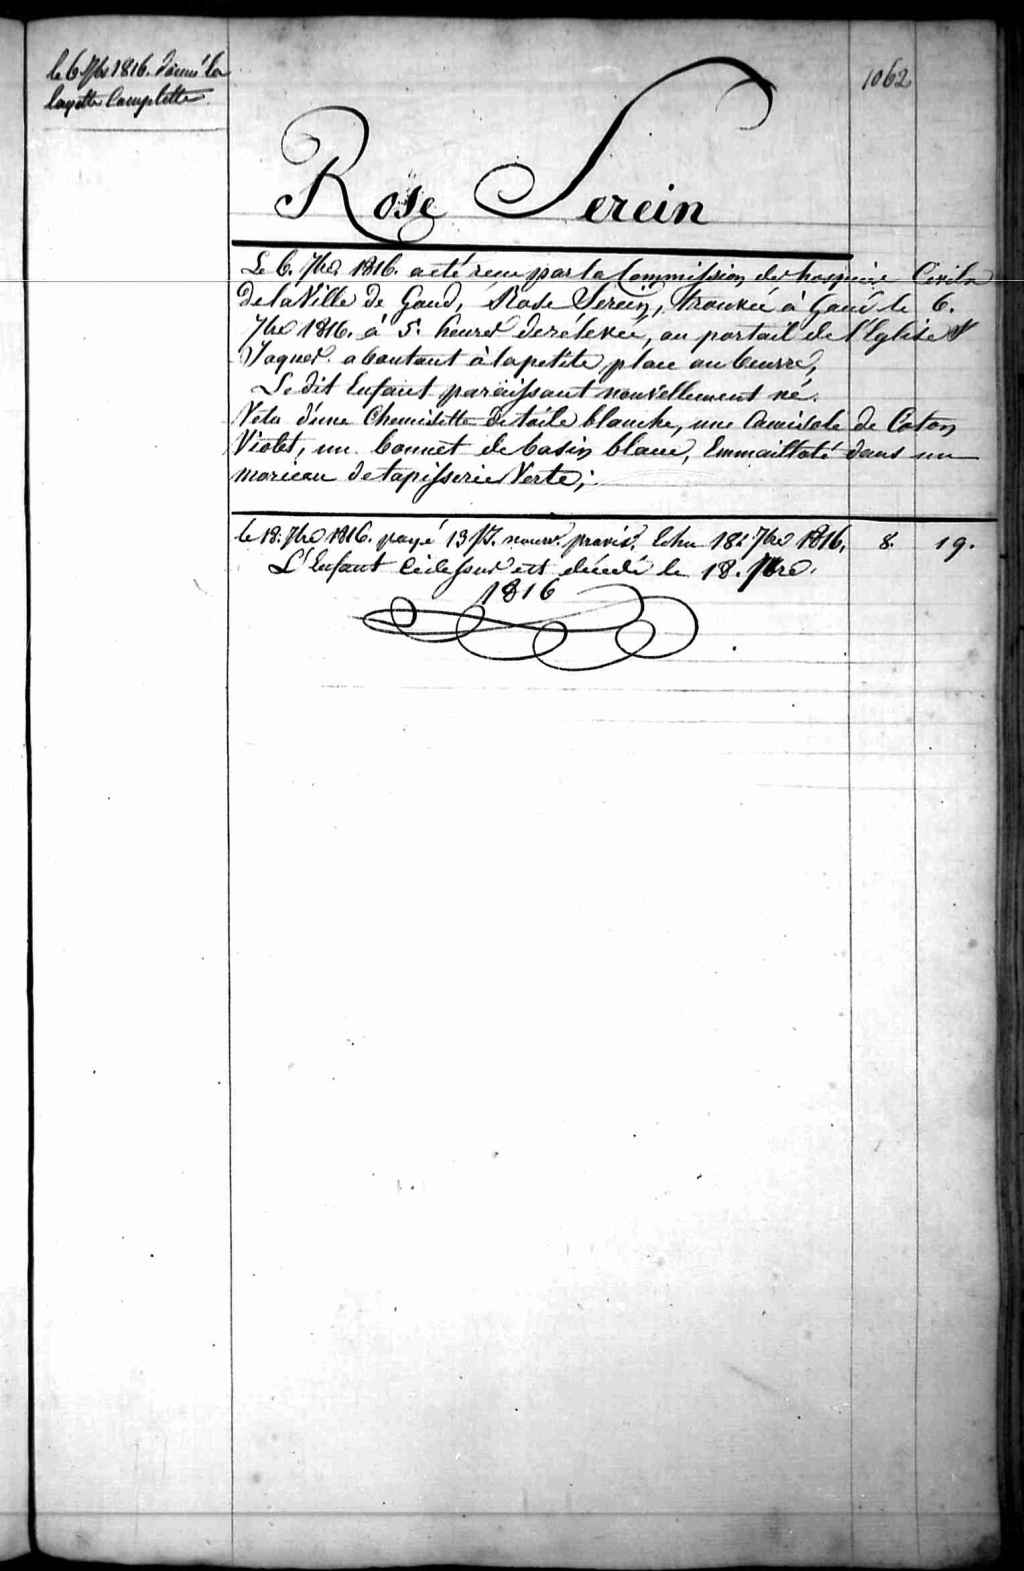 le 6. 7bre 1816. donné la
layette Complette.
1062
Rose Serein
Le 6. 7bre 1816. a eté reçu par la Commission des hospices Civils
de la Ville de Gand, Rose Serein, trouvée à Gand le 6.
7bre 1816. à 5. heures de rélevée, au portail de l'Eglise St
Jaques. aboutant à la petite place au beurre,
Le dit Enfant paraissant nouvellement né.
Vetu d'une Chemisette de toile blanche, une Camisole de Coton
Violet, un bonnet de basin blanc, Emmailloté dans un
morceau de tapisserie Verte;
le 18. 7bre 1816. payé 13 js. nourr. provis. Echu 18. 7bre 1816. 8. 19.
L'Enfant cidessus est décédé le 18. 7bre.
1816